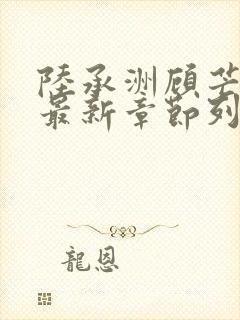 陸承洲顧芒
最新章節列
龍恩